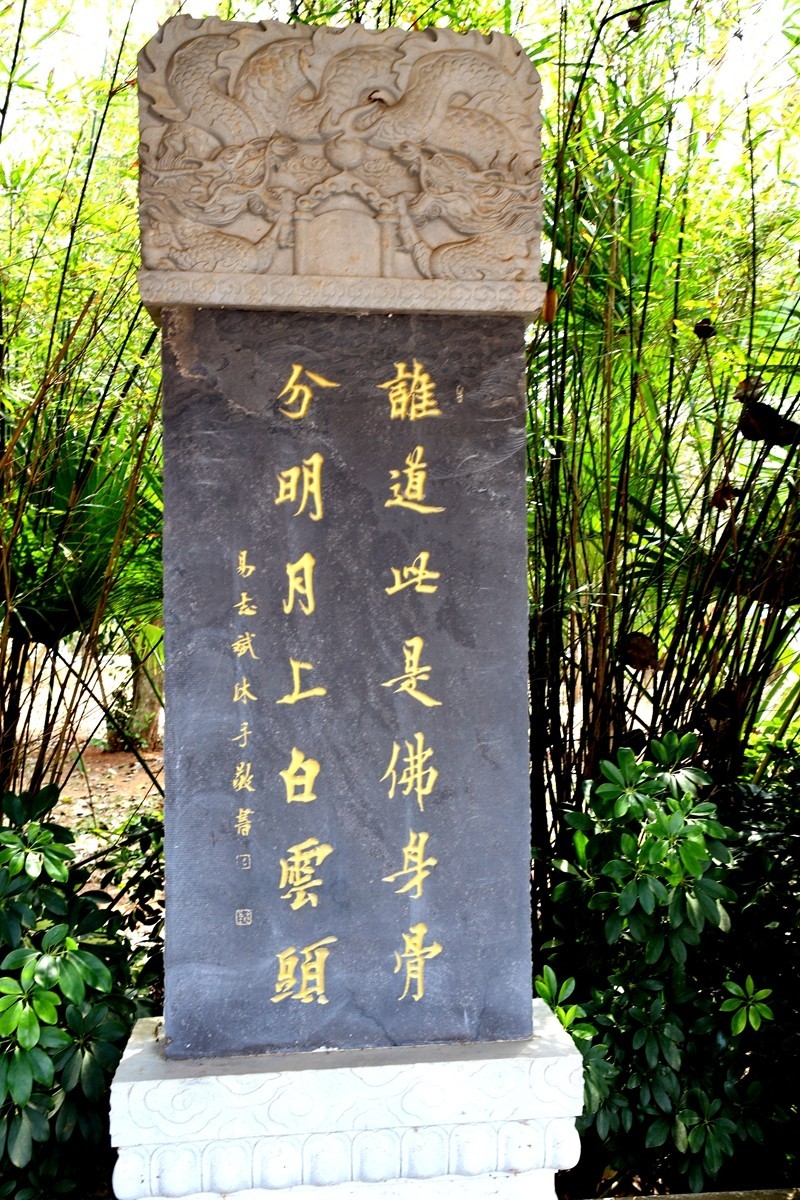 誰道此是佛身骨
分明月上白雲頭
易志斌沐手敬書